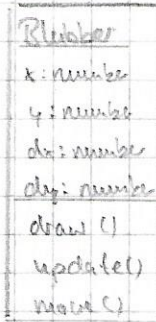 Blubber
x: number
y: number
dx: number
dy: number
draw ()
update()
move ()